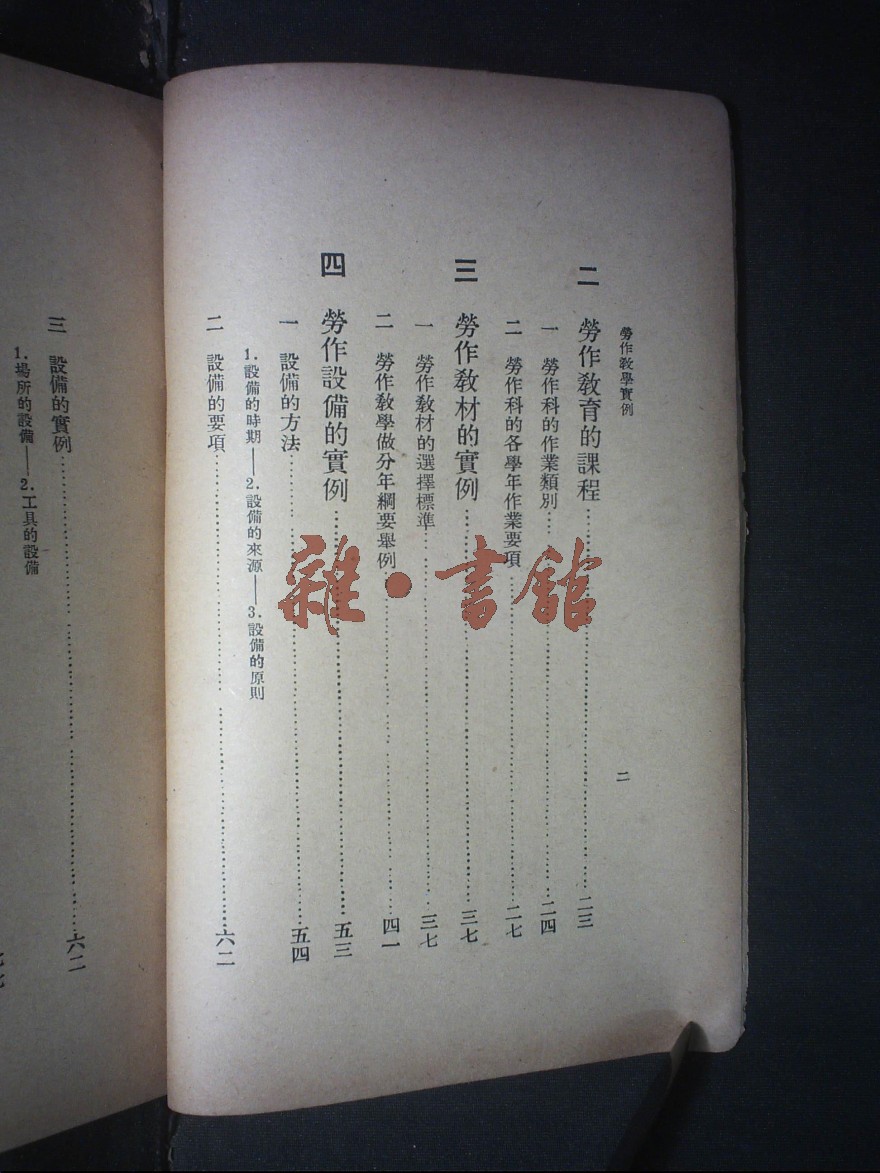 勞作教學實例
二
二 勞作教育的課程……二三
一 勞作科的作業類別……二四
二 勞作科的各學年作業要項……二七
三 勞作教材的實例……三七
一 勞作教材的選擇標準……三七
二 勞作教學做分年綱要舉例……四一
四 勞作設備的實例……五三
一 設備的方法……五四
1.設備的時期——2.設備的來源——3.設備的原則
二 設備的要項……六二
三 設備的實例……六二
1.場所的設備——2.工具的設備
雜·書館